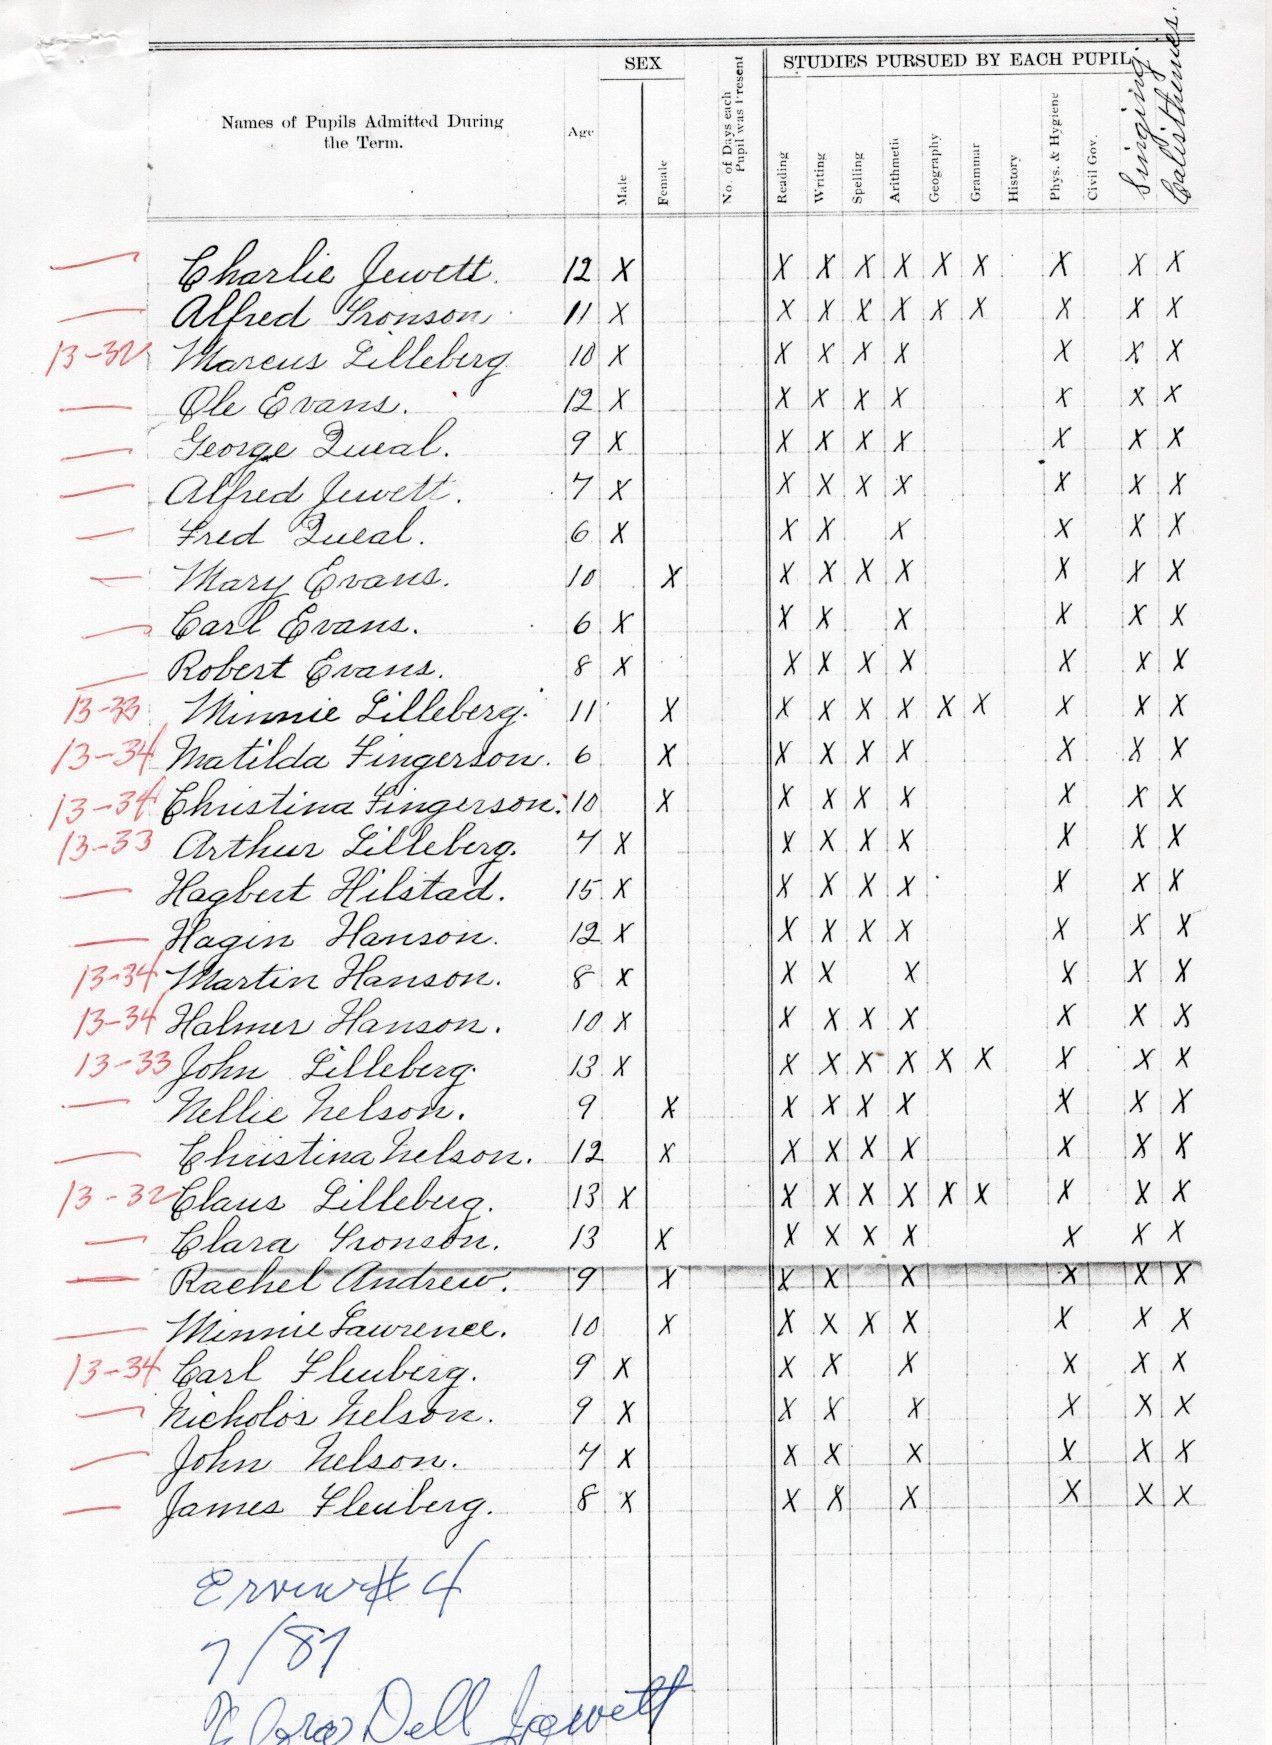 SEX
STUDIES PURSUED BY EACH PUPIL
Names of Pupils Admitted During the Term.
Age
Male
Female
No. of Days each Pupil was Present
Reading
Writing
Spelling
Arithmetic
Geography
Grammar
History
Phys. & Hygiene
Civil Gov.
Singing.
Calisthenics.
— Charlie Jewett. 12 X X X X X X X X X X
— Alfred Tronson. 11 X X X X X X X X X X
13-32 Marcus Lilleberg 10 X X X X X X X X
— Ole Evans. 12 X X X X X X X X
— George Queal. 9 X X X X X X X X
— Alfred Jewett. 7 X X X X X X X X
— Fred Queal. 6 X X X X X X X
— Mary Evans. 10 X X X X X X X X
— Carl Evans. 6 X X X X X X X
— Robert Evans. 8 X X X X X X X X
13-33 Minnie Lilleberg. 11 X X X X X X X X X X
13-34 Matilda Fingerson. 6 X X X X X X X X
13-34 Christina Fingerson. 10 X X X X X X X X
13-33 Arthur Lilleberg. 7 X X X X X X X X
— Hagbert Hilstad. 15 X X X X X X X X
— Hagin Hanson. 12 X X X X X X X X
13-34 Martin Hanson. 8 X X X X X X X
13-34 Halmer Hanson. 10 X X X X X X X X
13-33 John Lilleberg. 13 X X X X X X X X X X
— Nellie Nelson. 9 X X X X X X X X
— Christina Nelson. 12 X X X X X X X X
13-32 Claus Lilleberg. 13 X X X X X X X X X X
— Clara Tronson. 13 X X X X X X X X
— Rachel Andrew. 9 X X X X X X X
— Minnie Lawrence. 10 X X X X X X X X
13-34 Carl Fleuberg. 9 X X X X X X X
— Nicholos Nelson. 9 X X X X X X X
— John Nelson. 7 X X X X X X X
— James Fleuberg. 8 X X X X X X X
Ervin # 4
7/87
Dell Jewett